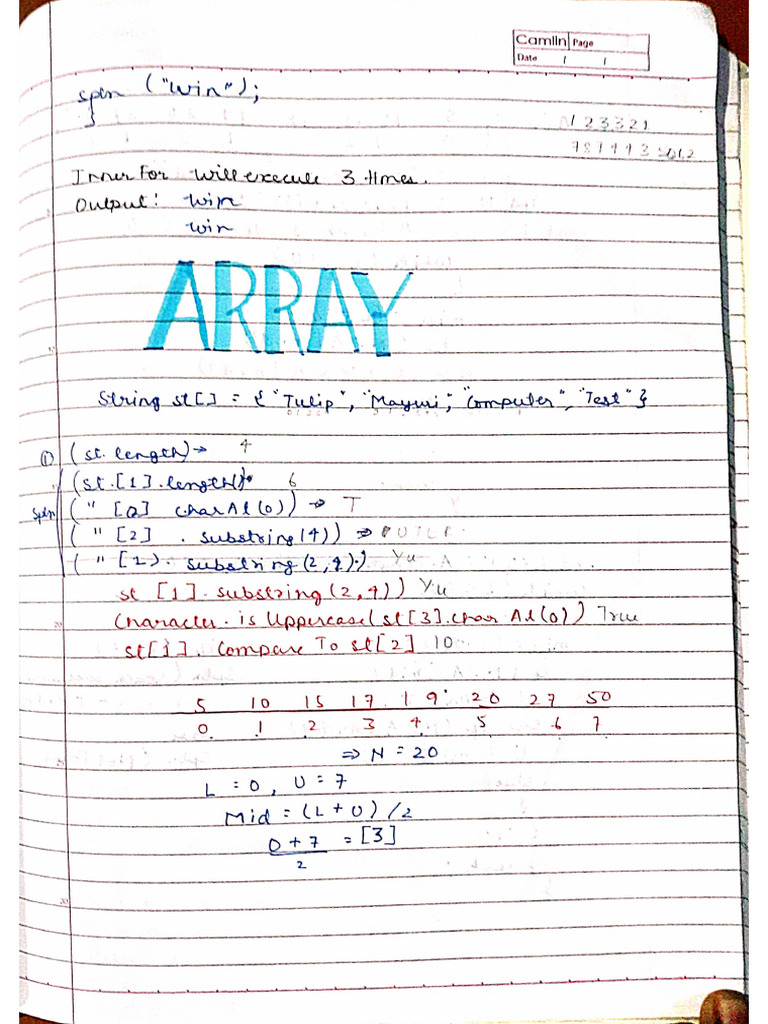 Camlin Page
Date / /
spln ("Win");
}
123321
Inner For will execute 3 times.
Output: win
win
ARRAY
String st[] = {"Tulip", "Mayuri", "Computer", "Test"}
① (st. length) → 4
(st.[1].length()) 6
Spln (" [0] charAt(0)) → T
(" [2] . substring(4)) →
(" [1). substring(2,4).) Yu
st [1]. substring(2,4)) Yu
Character. is Uppercase(st[3].char At(0)) True
st[1]. Compare To st[2] 10
5 10 15 17 19 20 27 50
0 1 2 3 4 5 6 7
⇒ N = 20
L = 0, U = 7
Mid = (L+U)/2
0+7 = [3]
2